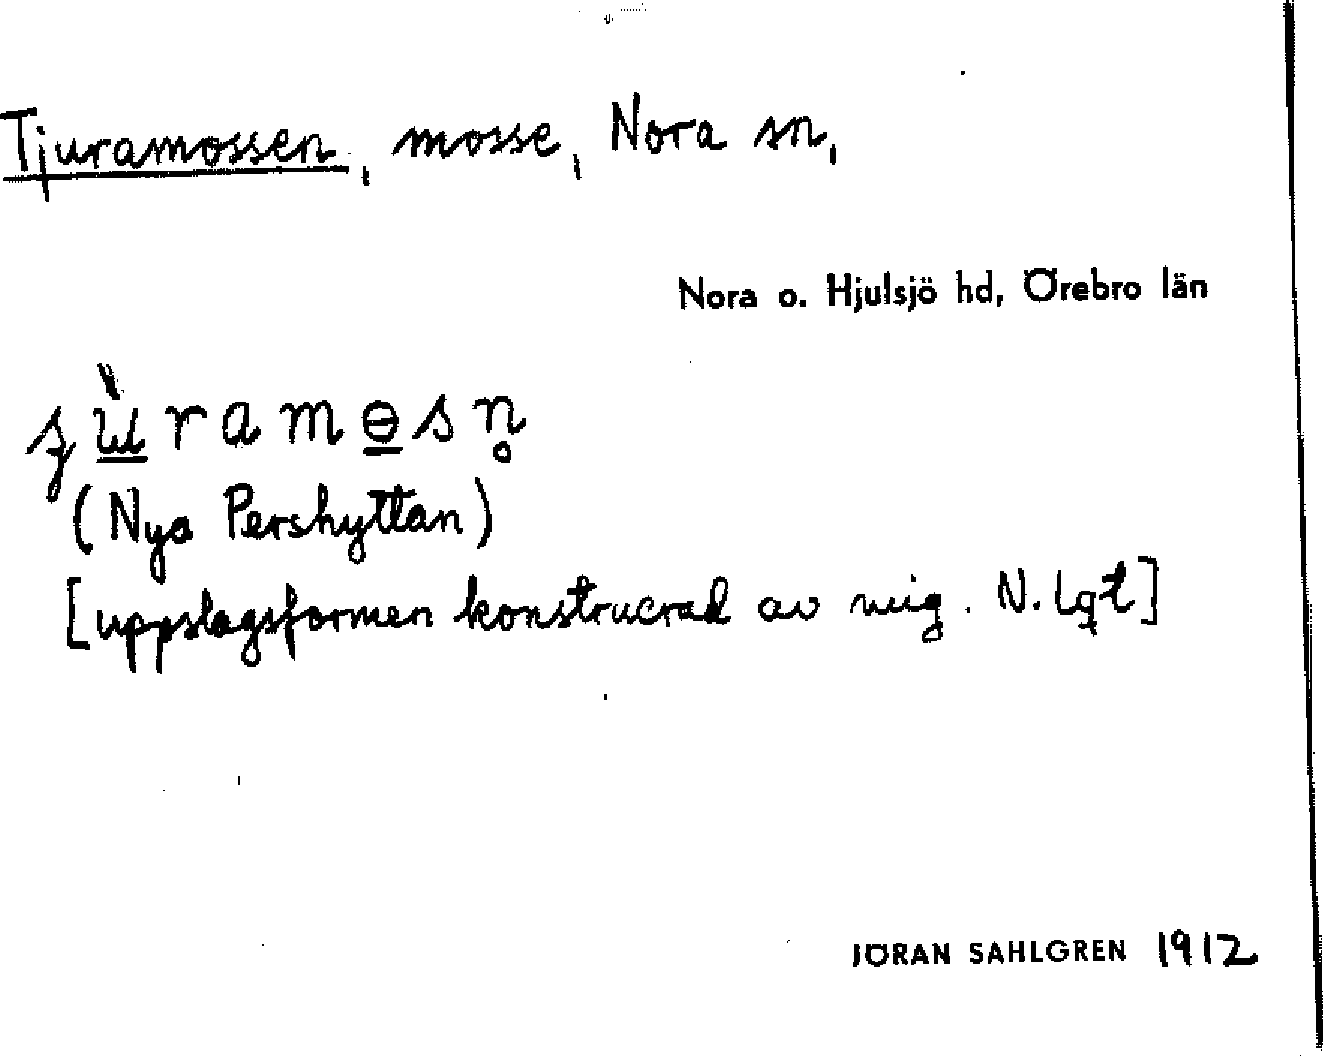 Tjuramossen, mosse, Nora sn,
Nora o. Hjulsjö hd, Örebro län
(Nya Pershyttan)
[uppslagsformen konstruerad av mig. N. Lgt]
JÖRAN SAHLGREN 1912